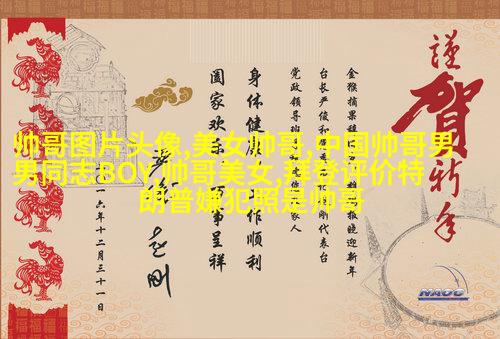 帅哥图片头像,美女帅哥,中国帅哥男
男同志BOY,帅哥美女,拜登评价特
朗普嫌犯照是帅哥
謹賀新年
金猴摘果 报晓迎新年
台长严俊和 刚代表台
党政领导 家人
身体健康 工作顺利
阖家欢乐 万事呈祥
一六年十二月三十一日
NAOC